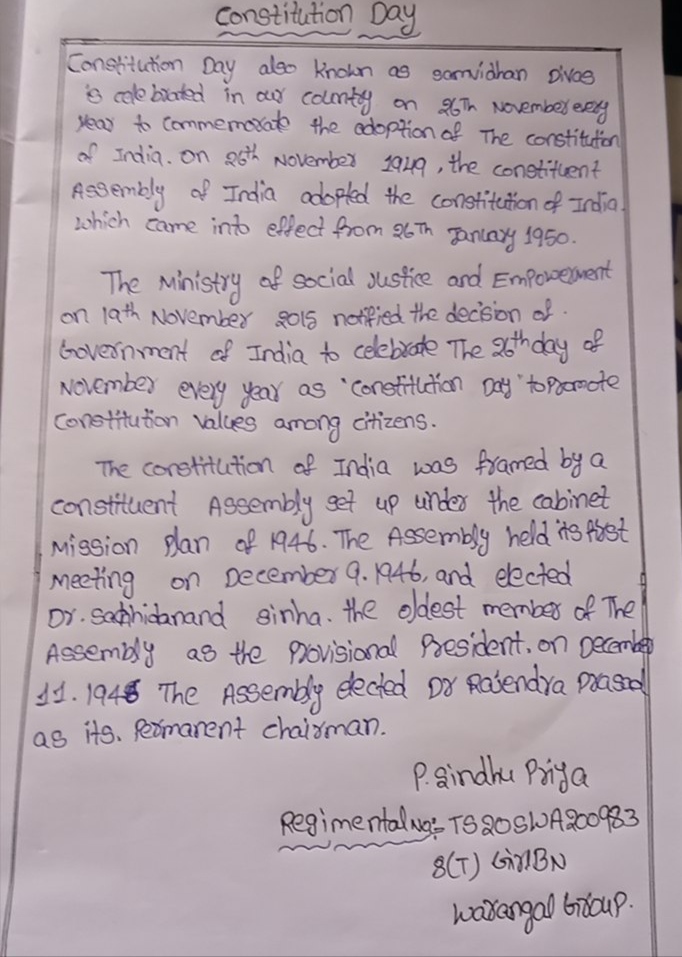 Constitution Day
Constitution Day also known as samvidhan Divas
is celebrated in our country on 26Th November every
year to commemorate the adoption of The constitution
of India. on 26th November 1949, the constituent
Assembly of India adopted the constitution of India.
which came into effect from 26Th January 1950.
The Ministry of social Justice and Empowerment
on 19th November 2015 notified the decision of.
Government of India to celebrate The 26th day of
November every year as 'constitution Day' to promote
Constitution values among citizens.
The constitution of India was framed by a
constituent Assembly set up under the cabinet
Mission plan of 1946. The Assembly held its first
Meeting on December 9.1946, and elected
Dr. Sachhidanand sinha. the oldest member of The
Assembly as the provisional President. on December
11.1946 The Assembly elected Dr Rajendra prasad
as its. Permanent chairman.
P. Sindhu Priya
Regimental No:- TS20SWA200983
8(T) Girl BN
Warangal Group.